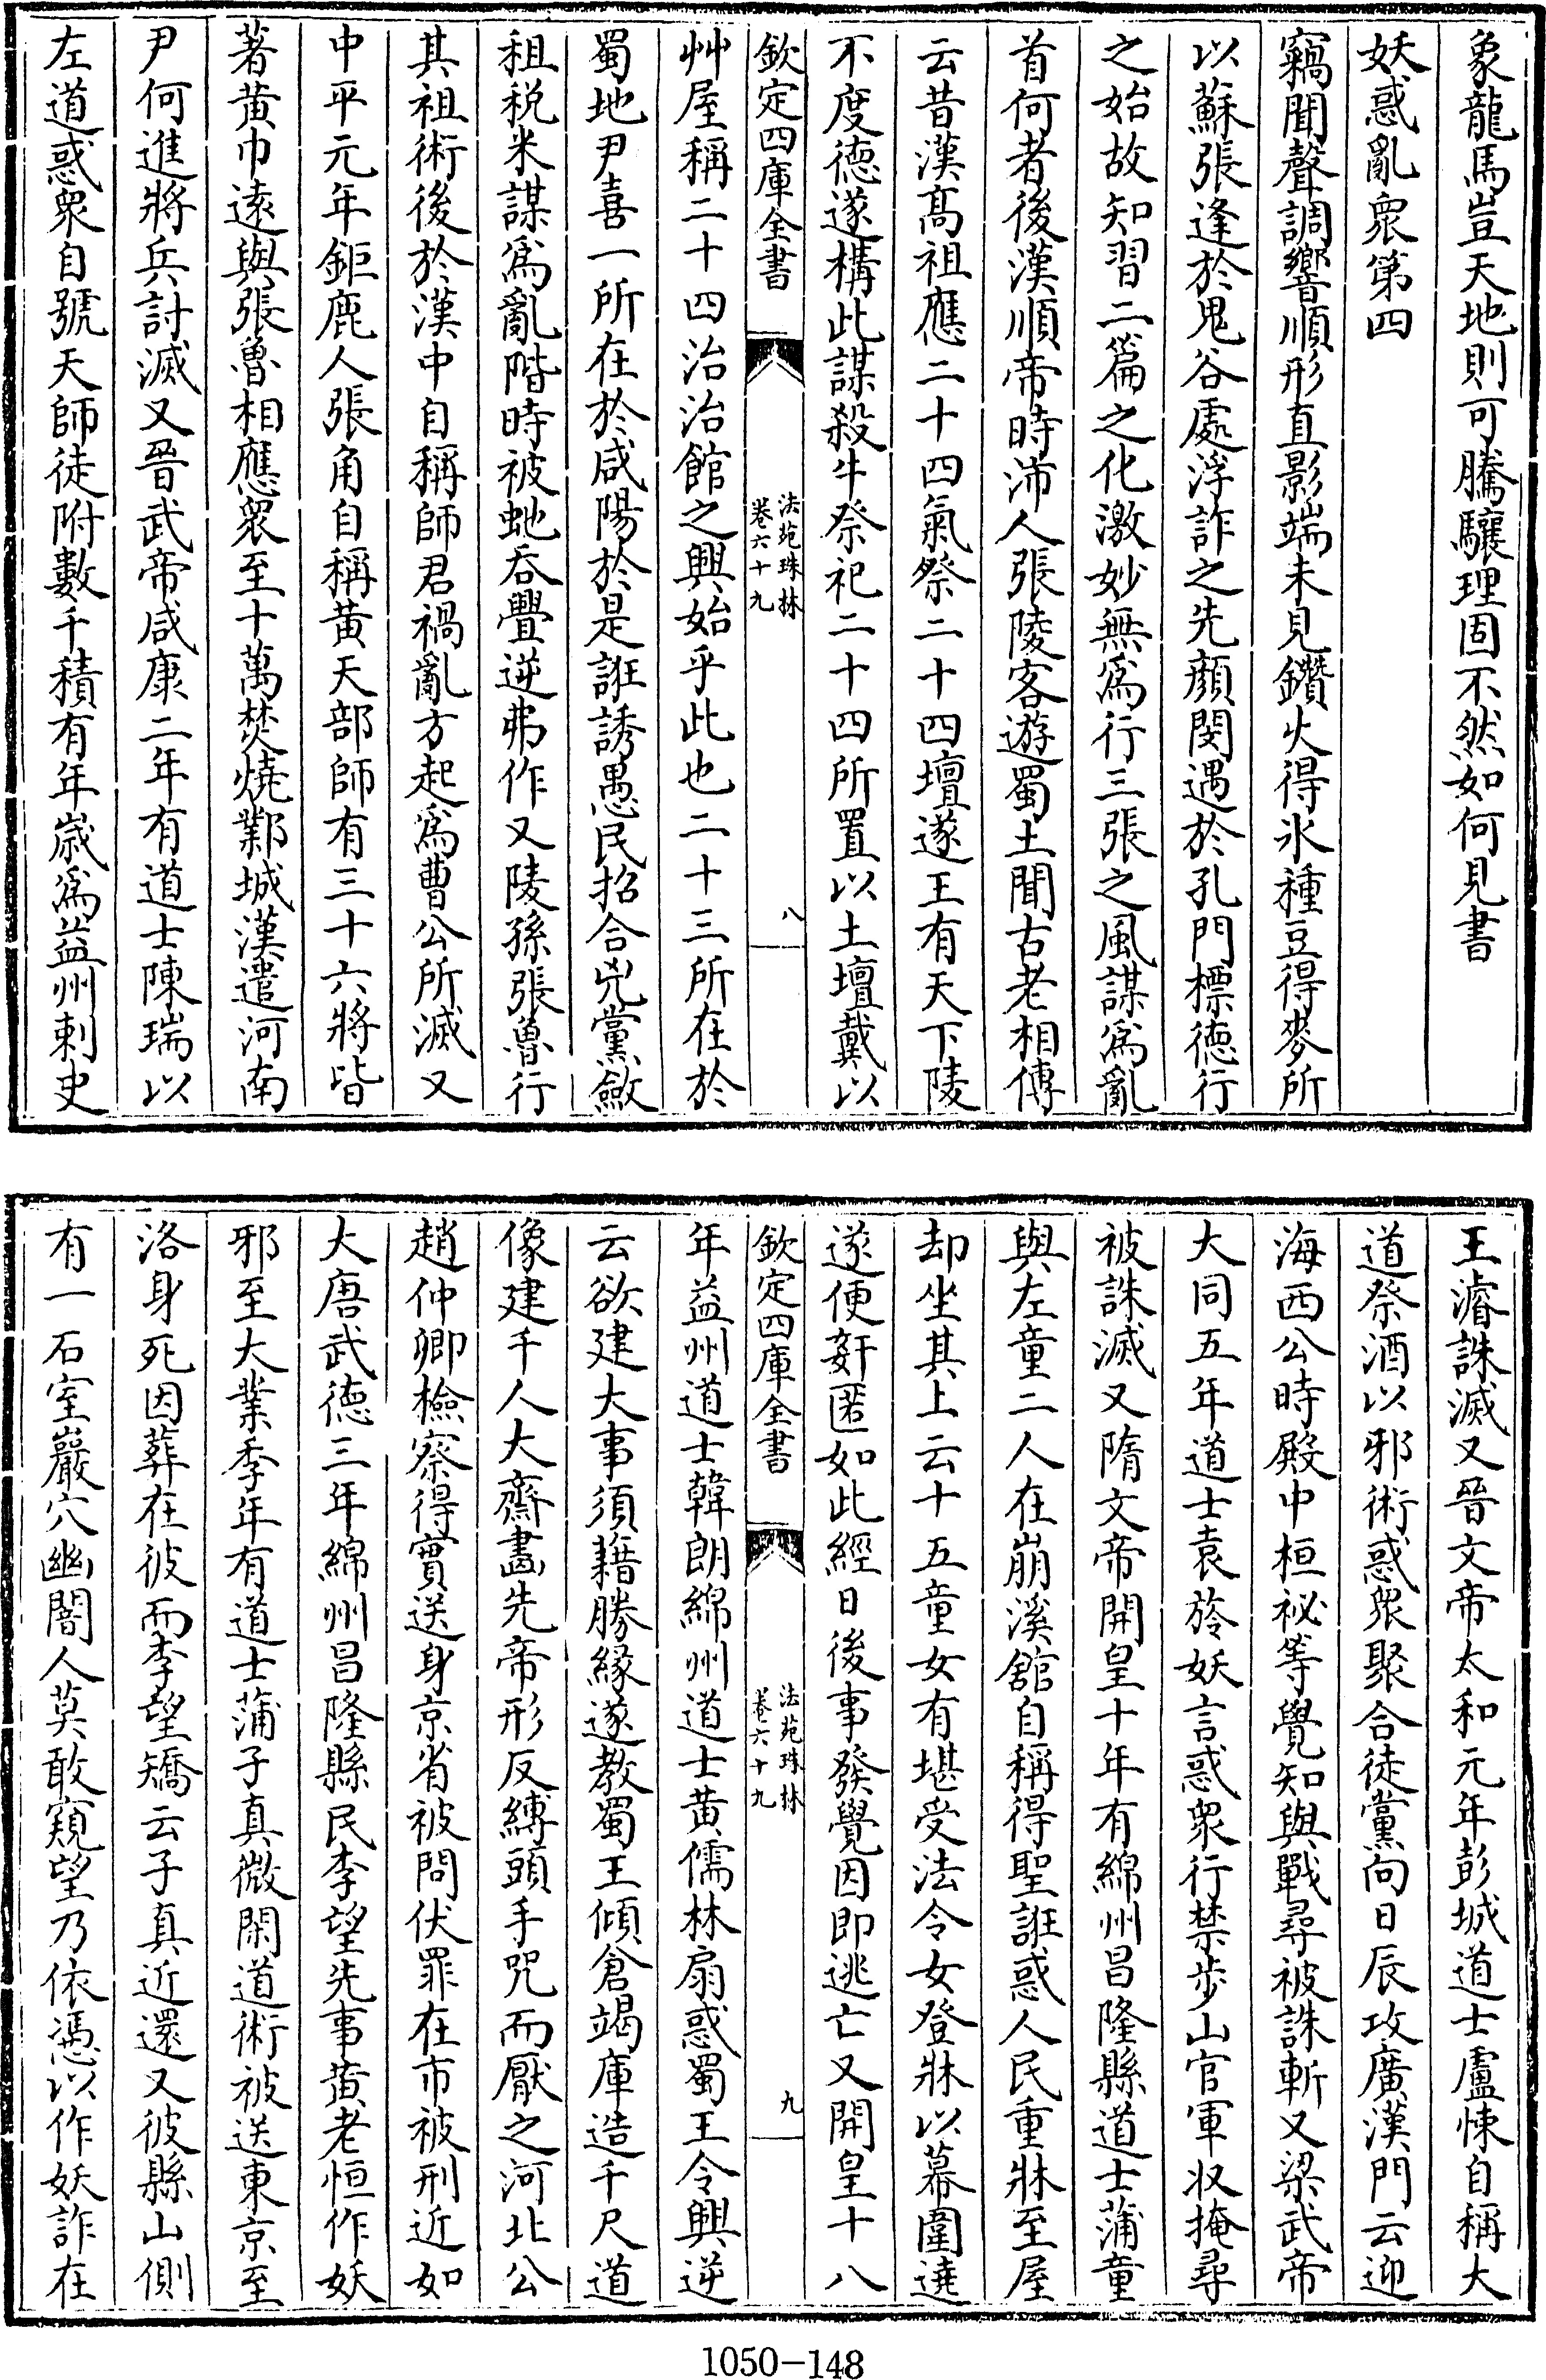 象龍馬豈天地則可騰驤理固不然如何見書
妖惑亂衆第四
竊聞聲調響順形直影端未見鑽火得氷種豆得麥所
以蘇張逢於鬼谷處浮詐之先顔閔遇於孔門標徳行
之始故知習二篇之化激妙無爲行三張之風謀爲亂
首何者後漢順帝時沛人張陵客遊蜀土聞古老相傳
云昔漢髙祖應二十四氣祭二十四壇遂王有天下陵
不度徳遂構此謀殺牛祭祀二十四所置以土壇戴以
欽定四庫全書
法苑珠林
卷六十九
八
艸屋稱二十四治治館之興始乎此也二十三所在於
蜀地尹喜一所在於咸陽於是誑誘愚民招合兇黨斂
租税米謀爲亂階時被虵吞舋逆弗作又陵孫張魯行
其祖術後於漢中自稱師君禍亂方起爲曹公所滅又
中平元年鉅鹿人張角自稱黄天部師有三十六將皆
著黄巾遠與張魯相應衆至十萬焚燒鄴城漢遣河南
尹何進將兵討滅又晉武帝咸康二年有道士陳瑞以
左道惑衆自號天師徒附數千積有年嵗爲益州刺史
王濬誅滅又晉文帝太和元年彭城道士盧悚自稱大
道祭酒以邪術惑衆聚合徒黨向日辰攻廣漢門云迎
海西公時殿中桓祕等覺知與戰尋被誅斬又梁武帝
大同五年道士袁旍妖言惑衆行禁步山官軍収掩尋
被誅滅又隋文帝開皇十年有綿州昌隆縣道士蒲童
與左童二人在崩溪舘自稱得聖誑惑人民重牀至屋
却坐其上云十五童女有堪受法令女登牀以幕圍遶
遂便姧匿如此經日後事發覺因即逃亡又開皇十八
欽定四庫全書
法苑珠林
卷六十九
九
年益州道士韓朗綿州道士黄儒林扇惑蜀王令興逆
云欲建大事須藉勝縁遂教蜀王傾倉竭庫造千尺道
像建千人大齋畫先帝形反縛頭手咒而厭之河北公
趙仲卿檢察得實送身京省被問伏罪在市被刑近如
大唐武徳三年綿州昌隆縣民李望先事黄老恒作妖
邪至大業季年有道士蒲子真微閑道術被送東京至
洛身死因葬在彼而李望矯云子真近還又彼縣山側
有一石室巖穴幽闇人莫敢窺望乃依憑以作妖詐在
1050-148